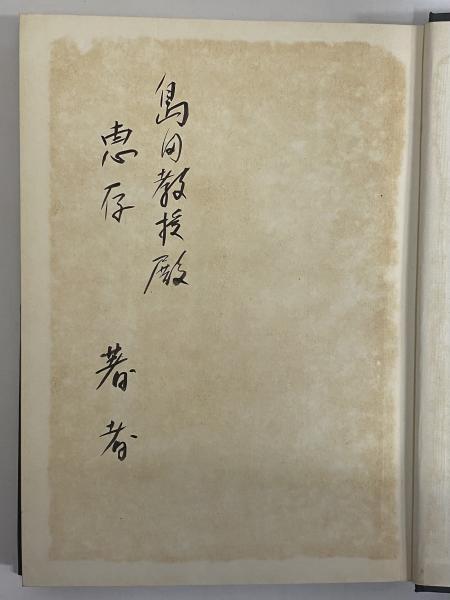 島田教授殿
恵存 著者